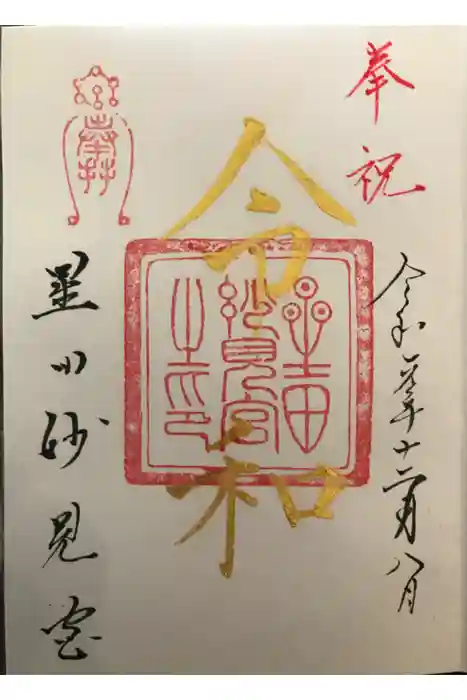 奉祝
令和元年十二月八日
令和
星田
妙見宮
之印
星田妙見宮